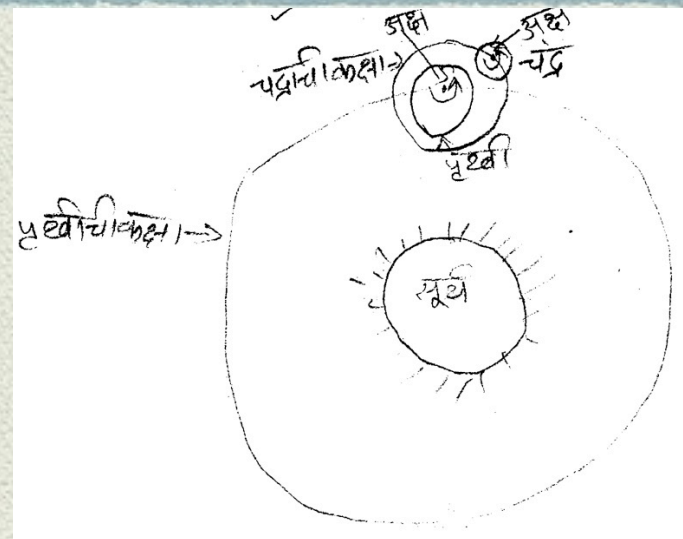 अक्ष
अक्ष
चंद्राची कक्षा →
चंद्र
पृथ्वी
पृथ्वीची कक्षा →
सूर्य